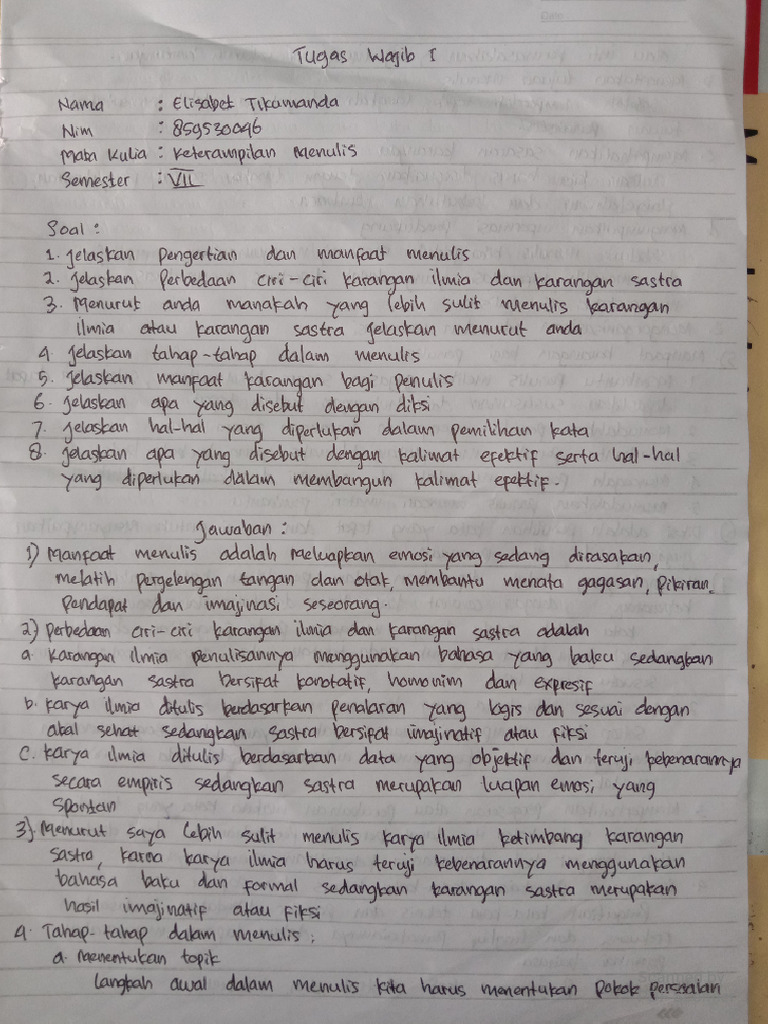 Tugas Wagib I
Nama : Elisabet Tikamanda
Nim : 859530046
Mata Kulia : Keterampilan Menulis
Semester : VII
Soal :
1. Jelaskan pengertian dan manfaat menulis
2. Jelaskan Perbedaan ciri-ciri karangan ilmia dan karangan sastra
3. Menurut anda manakah yang lebih sulit menulis karangan
ilmia atau karangan sastra jelaskan menurut anda
4. Jelaskan tahap-tahap dalam menulis
5. Jelaskan manfaat karangan bagi penulis
6. Jelaskan apa yang disebut dengan diksi
7. Jelaskan hal-hal yang diperlukan dalam pemilihan kata
8. Jelaskan apa yang disebut dengan kalimat efektif serta hal-hal
yang diperlukan dalam membangun kalimat efektif.
Jawaban :
1) Manfaat menulis adalah meluapkan emosi yang sedang dirasakan,
melatih pergelengan tangan dan otak, membantu menata gagasan, pikiran,
Pendapat dan imajinasi seseorang.
2) Perbedaan ciri-ciri karangan ilmia dan karangan sastra adalah
a. Karangan ilmia penulisannya menggunakan bahasa yang baku sedangkan
karangan sastra bersifat konotatif, homonim dan expresif
b. Karya ilmia ditulis berdasarkan penalaran yang logis dan sesuai dengan
akal sehat sedangkan sastra bersifat imajinatif atau fiksi
C. Karya ilmia ditulis berdasarkan data yang objektif dan teruji kebenarannya
secara empiris sedangkan sastra merupakan luapan emosi yang
spontan
3) Menurut saya lebih sulit menulis karya ilmia ketimbang karangan
sastra, karna karya ilmia harus teruji kebenarannya menggunakan
bahasa baku dan formal sedangkan karangan sastra merupakan
hasil imajinatif atau fiksi
4. Tahap-tahap dalam menulis :
a. Menentukan topik
Langkah awal dalam menulis kita harus menentukan pokok persoalan